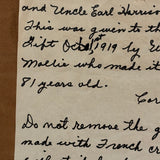 and Uncle Earl Harrison
This was given to th
Gift Oct 1st 1919 by E
Mollie who made it
81 years old.
Cor
Do not remove the g
made with French c